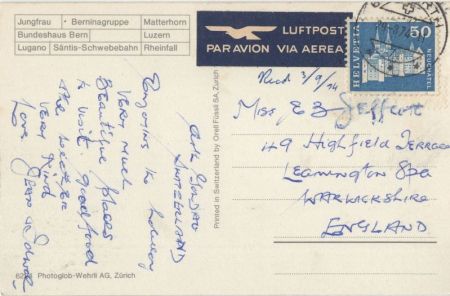 Jungfrau • Berninagruppe Matterhorn
Bundeshaus Bern Luzern
Lugano Säntis-Schwebebahn Rheinfall
LUFTPOST
PAR AVION VIA AEREA
HELVETIA
50
NEUCHÂTEL
Recd 3/9/74
Miss E
49 Highfield Terrace
Leamington Spa
WARWICKSHIRE
ENGLAND
SWITZERLAND
Enjoying the holiday
very much
Beautiful places
to visit. Good food
the weather
very mixed
Love
Printed in Switzerland by Orell Füssli SA, Zürich
Photoglob-Wehrli AG, Zürich